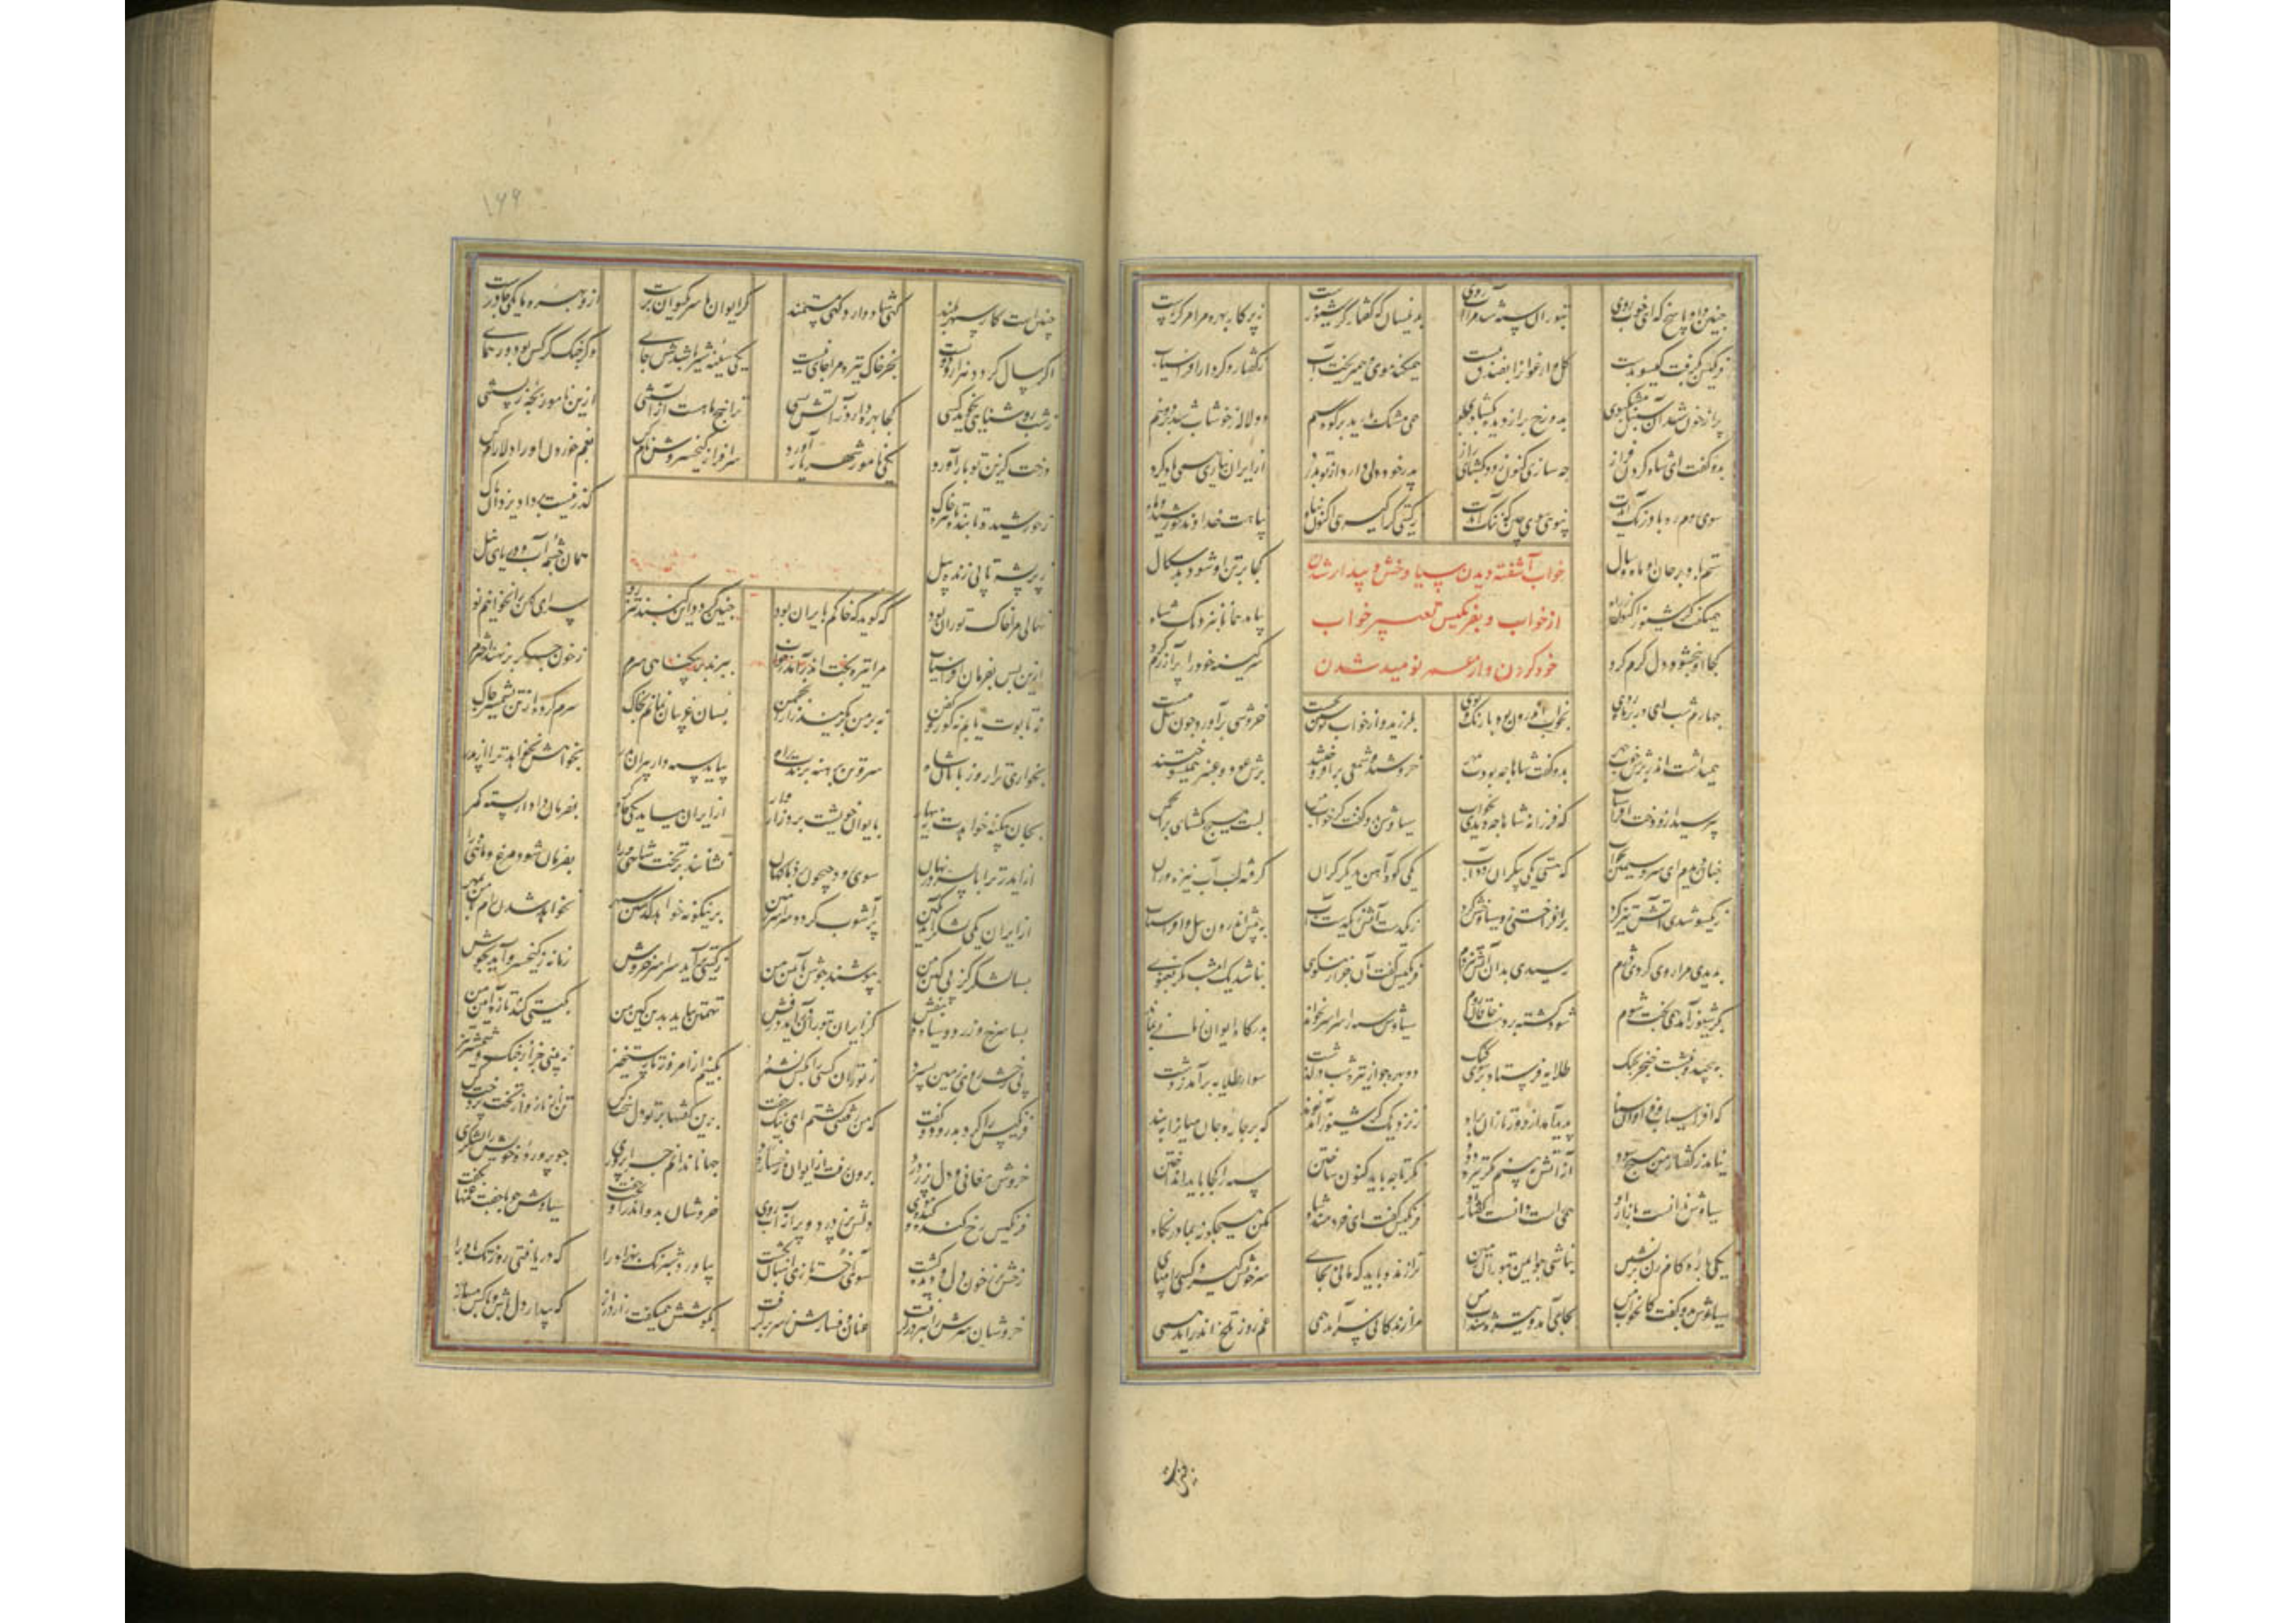 چنین داد پاسخ که ای خوب روی بتوران سپه شد مرا آب روی بدینسان که گفتار گرشیوز است ز پرکار بهره مرا مرکز است
فرنگیس گرفت گیسو بدست گل ارغوانرا بفندق بخست همیکند موی و همی ریخت آب ز گفتار و کردار افراسیاب
پر از خون شد آن سنبل مشکبوی بدو رخ بر از دیده بگشاد جوی همی مشک بارید بر کوه سیم دو لاله ز خوشاب شد بدو نیم
بدو گفت ای شاه گردن فراز چه سازی کنون زود بگشای راز پدر خود دلی دارد از تو بدرد از ایران نیاری سخن یاد کرد
سوی روم ره با درنگ آیدت نپوئی سوی چین که ننگ آیدت ز گیتی کرا گیری اکنون پناه پناهت خداوند خورشید و ماه
ستم باد بر جان او ماه و سال کجا بر تن او شود بدسگال
همیگفت گرشیوز اکنون ز راه بیاید همانا بنزدیک شاه
کجا او ببخشود و دل گرم کرد سر کینه خود را پر آزرم کرد
خواب آشفته دیدن سیاوخش و بیدار شدن
از خواب و بفرنگیس تعبیر خواب
خود کردن و از عمر نومید شدن
چهارم شب ای در بر ماهروی بخواب اندرون بود با رنگ و بوی بلرزید و از خواب بجست خروشی برآورد چون پیل مست
همیداشت اندر برش خوب چهر بدو گفت شاها چه بودت ز مهر خروشید و شمعی برافروختند برش عود و عنبر همیسوختند
بپرسید ازو دخت افراسیاب که فرزانه شاها چه دیدی بخواب سیاوش بدو گفت کز خواب من لبت هیچ مگشای بر انجمن
چنان دیدم ای سرو سیمین بخواب که هستی یکی بیکران رود آب یکی کوه آهن بدیگر کران گرفته لب آب نیزه وران
ز یکسو شدی آتش تیز گرد برافروختی زو سیاوخش گرد ز یکدست آتش ز یکدست آب به پیش اندرون پیل و افراسیاب
بدیدی مرا روی کردی دژم دمیدی بدان آتش تیز دم فرنگیس گفت آن جز از نیکوی نباشد یک امشب مگر بغنوی
بگرشیوز آمد همی بخت شوم شود کشته بر دست خاقان روم سیاوش سپه را سراسر بخواند بدرگاه ایوان
بپیچید و بنشست خنجر بچنگ طلایه فرستاد بر سوی گنگ دو بهره چو از تیره شب درگذشت سوار طلایه برآمد ز دشت
که افراسیاب و فراوان سپاه پدید آمد از دور تازان براه ز نزدیک گرشیوز آمد نوند که بر چاره جان میانرا ببند
نیامد ز گفتار من هیچ سود از آتش ندیدم مگر تیره دود نگر تا چه باید کنون ساختن سپه را کجا باید انداختن
سیاوش ندانست بازار او همی راست دانست گفتار او فرنگیس گفت ای خردمند شاه مکن هیچگونه بما در نگاه
یکی باره گام زن برنشین نباشی ایمن بتوران زمین ترا زنده باید که مانی بجای سر خویش گیر و کسی را مپای
سیاوش بدو گفت کان خواب من بجای آمد و تیره شد آب من مرا زندگانی سرآمد همی غم روز تلخ اندرآمد همی
۱۶۶
چنین است کار سپهر بلند گهی شاد دارد گهی مستمند گر ایوان ما سر بکیوان برست ازو بهره ما یکی چادرست
اگر سال گردد هزار و دویست بجز خاک تیره مرا جای نیست یکی سینه شیر باشدش جای وگر جنگ کرکس بود ور همای
ز شب روشنائی نجوید کسی کجا بهره دارد ز آتش بسی ترا پنج ماه است از آبستنی ازین نامور بچه رستنی
درخت گزین تو بار آورد یکی نامور شهریار آورد سرافراز کیخسروش نام کن بغم خوردن او را دلارام کن
ز خورشید تابنده تا تیره خاک گذر نیست بر داد یزدان پاک
ز پر پشه تا پی زنده پیل همان چشمه آب و دریای نیل
نهالی مرا خاک توران بود که گوید که خاکم بایران بود چنین گردد این گنبد تیز رو سرای کهن را نخوانیم نو
ازین پس بفرمان افراسیاب مرا تیره بخت اندر آید بخواب ببرند بر بیگناهی سرم ز خون جگر برنهند افسرم
نه تابوت یابم نه گور و کفن نه بر من بگرید ز زار انجمن بسان غریبان بمانم بخاک سرم کرده از تن بشمشیر چاک
بخواری ترا روزبانان شاه سر و تن برهنه برندت براه بیاید سپهدار پیران بدر بخواهش بخواهد ترا از پدر
بجان بیگنه خواهدت زینهار بایوان خویشت برد زار و خوار از ایران بیاید یکی چاره گر بفرمان دادار بسته کمر
از ایدر ترا با پسر در نهان سوی رود جیحون برد ناگهان نشانند بر تخت شاهی ورا بفرمان شود مرغ و ماهی ورا
از ایران یکی لشکر آید بکین پر آشوب گردد سراسر زمین برینگونه خواهد گذشتن سپهر نخواهد شدن رام با من بمهر
بسا لشکر کز پی کین من بپوشند جوشن بآئین من ز گیتی برآید سراسر خروش زمانه ز کیخسرو آید بجوش
بسا سرخ و زرد و سیاه و بنفش کز ایران بتوران درفش تهمتن بیاید بدین کین من بگیتی کند تازه آئین من
پی رخش روی زمین بسپرد ز توران کسی را بکس نشمرد بکینم از امروز تا رستخیز نبینی جز از جنگ و شمشیر تیز
فرنگیس را کرد بدرود و گفت که من رفتنی گشتم ای نیک جفت برین گفتها بر تو دل سخت کن تن از ناز و از تخت پردخت کن
خروش مغانی و دل پر ز درد برون رفت از ایوان و رخساره زرد جهانا ندانم چرا پروری چو پرورده خویش را بشکری
فرنگیس رخ کنده موی پر درد و پر از آب روی خروشان بدو اندر آویخت سیاوش چو با جفت غمها بگفت
رخش پر ز خون دل و دیده گشت سوی آخر تازی اسپان گذشت بیاورد شبرنگ بهزاد را که دریافتی روز تگ باد را
خروشان سرش را ببر در گرفت عنان و فسارش ز سر برگرفت بگوشش همیگفت راز دراز که بیدار دل باش و با کس مساز